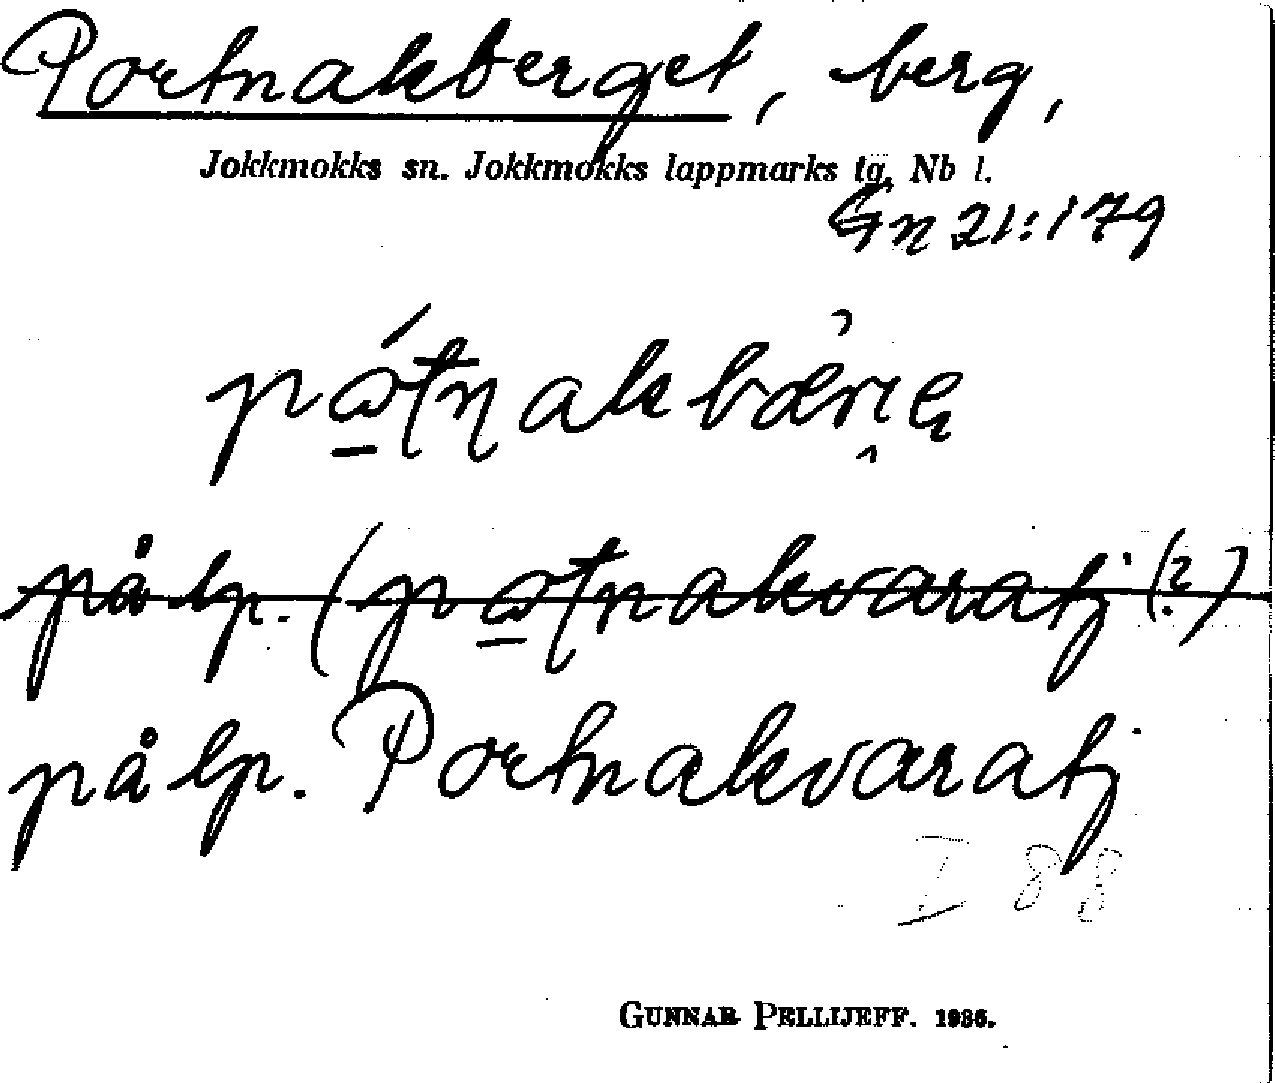 Portnakberget, berg,
Jokkmokks sn. Jokkmokks lappmarks tg, Nb l.
Gn 21:179
på lp. (
på lp. Portnakvaratj
I 88
GUNNAR PELLIJEFF. 1936.